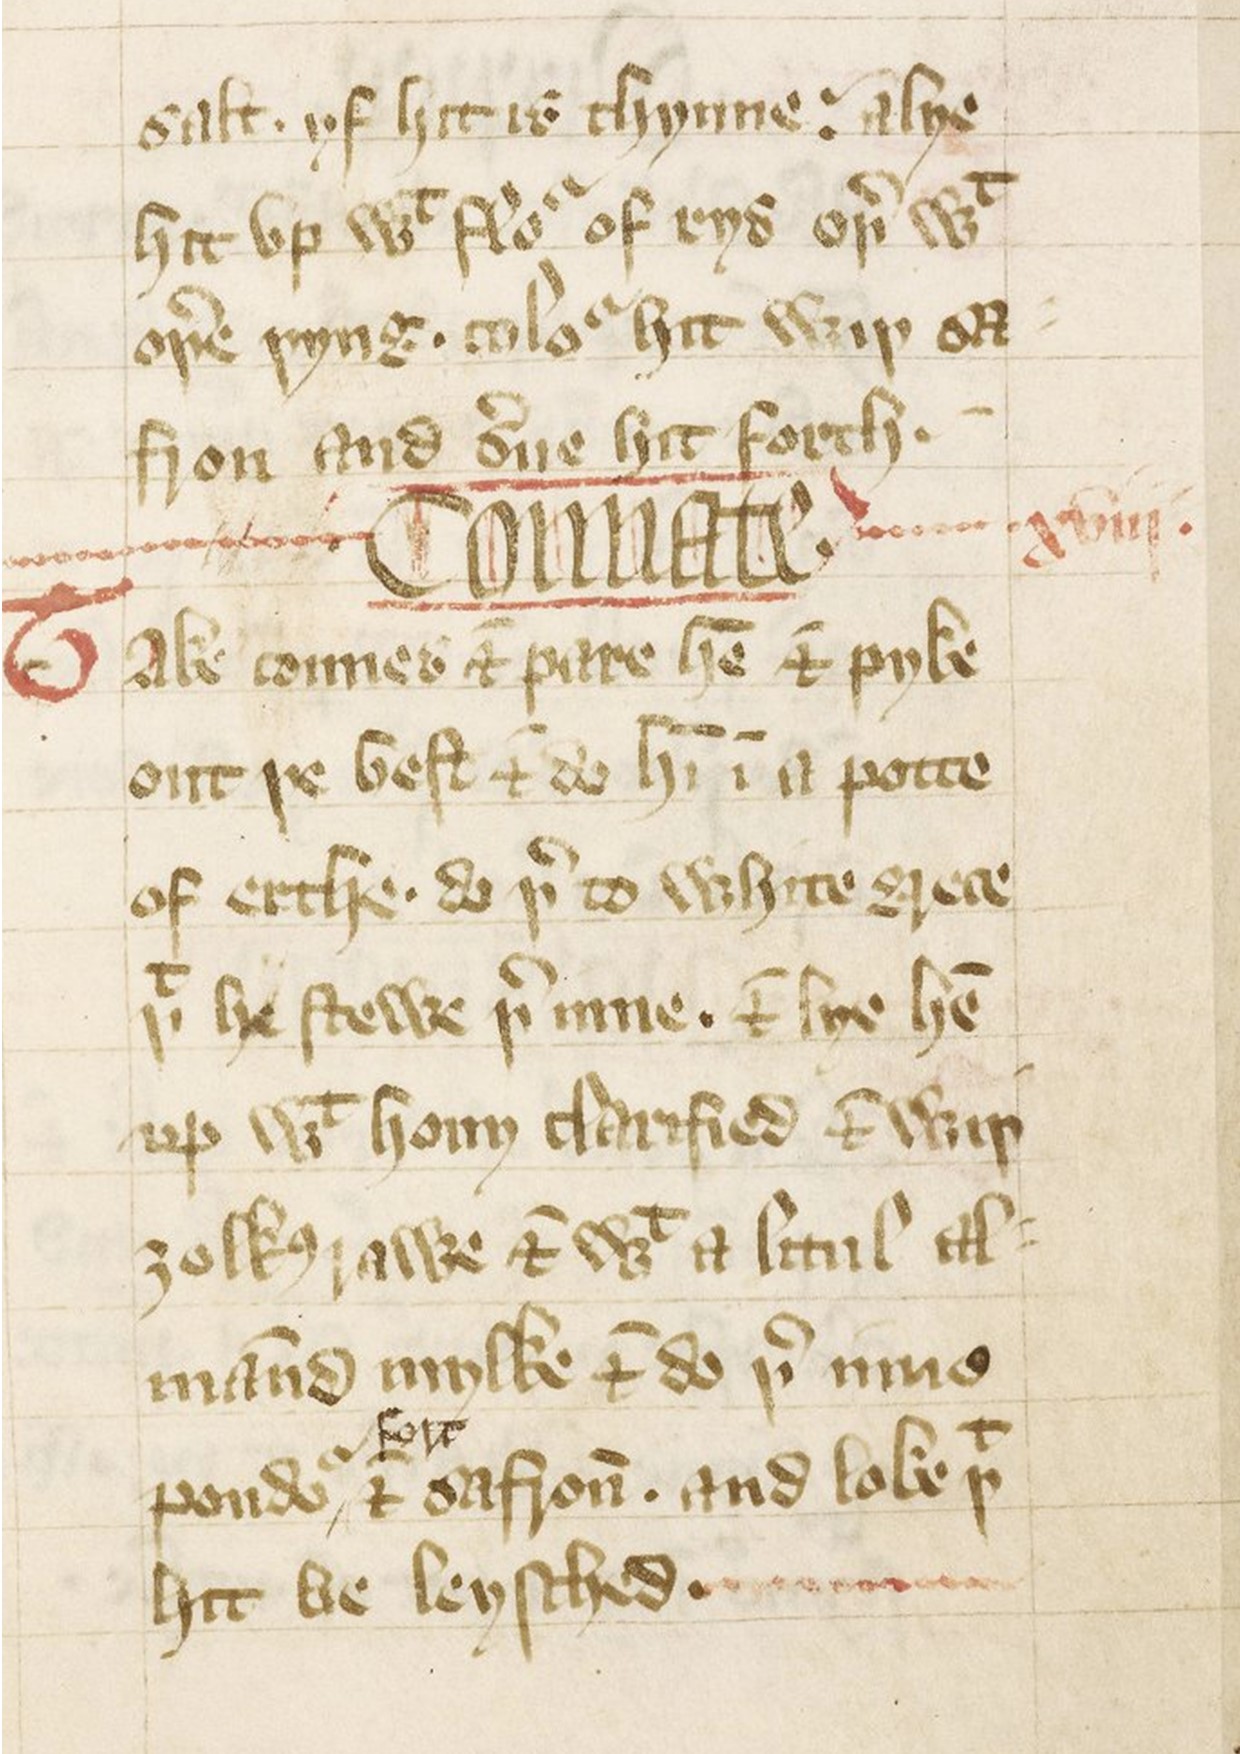 salt. yf hit is thynne: alye
hit vp wᵗ floᵘ of rys oþ̉ wᵗ
oþ̉e þyng. coloᵘ hit wiþ saf
fron and s̉ue hit forth.
Connate. .xviij.
Take connes & pare hē & pyke
out þe best & do hī ī a potte
of erthe. do þ̉ to white grece
þᵗ he stewe þ̉ inne. & lye hē
up wᵗ hony clarified & wiþ
ȝolkꝯ rawe & wᵗ a litul al
mānd mylke & do þ̉ inne
poudoᵘ fort & safron̄. and loke þᵗ
hit be leysched.